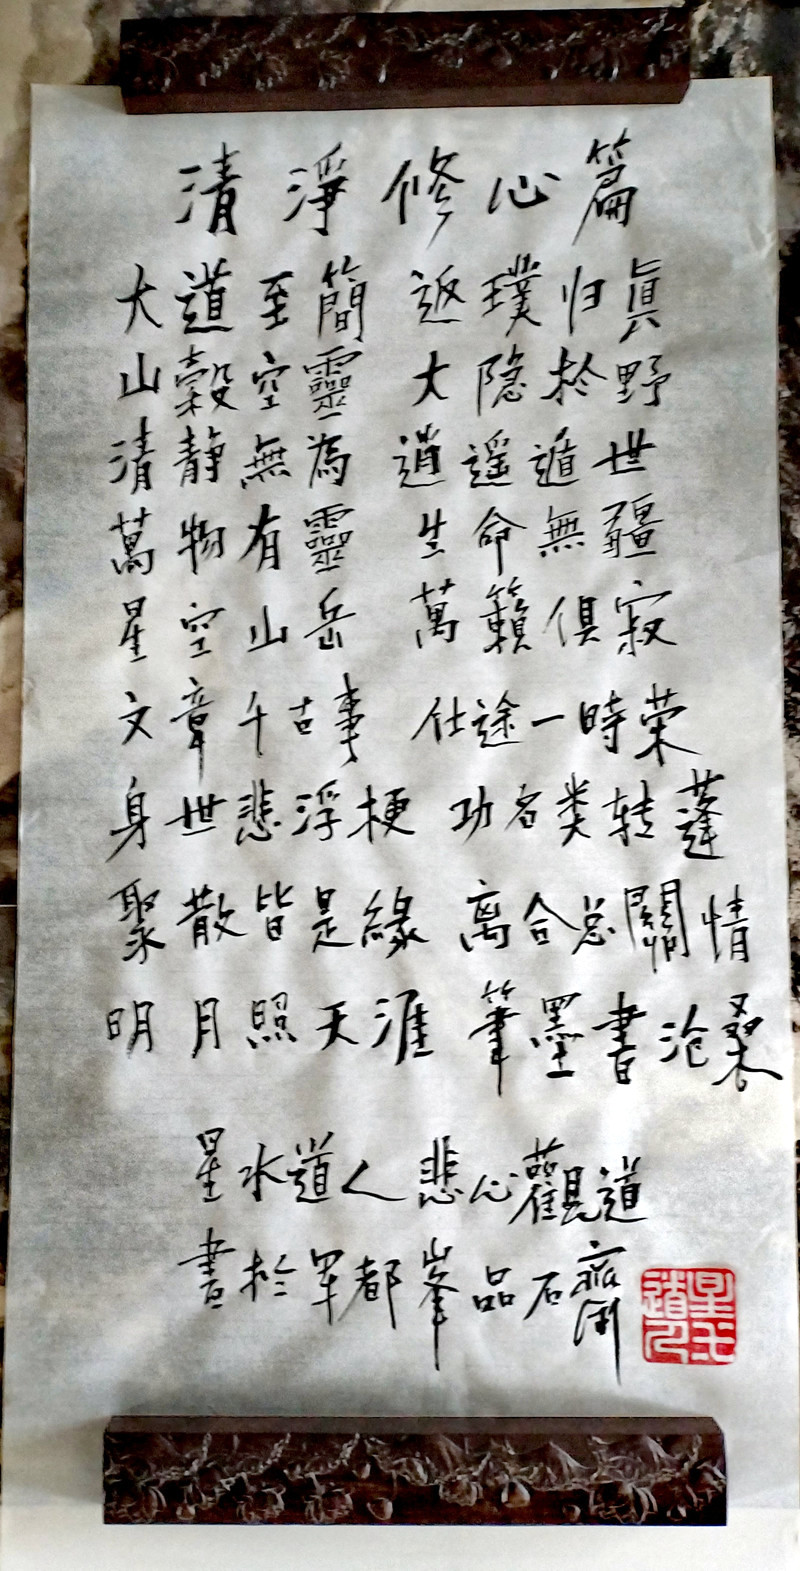 清淨修心篇
大道至簡 返璞归真
山穀空靈 大隐於野
清静無為 逍遥遁世
萬物有靈 生命無疆
星空山岳 萬籟俱寂
文章千古事 仕途一時荣
身世悲浮梗 功名类转蓬
聚散皆是緣 离合总關情
明月照天涯 筆墨書沧桑
星水道人 悲心觀道
書於军都峯品石齋
星水道人